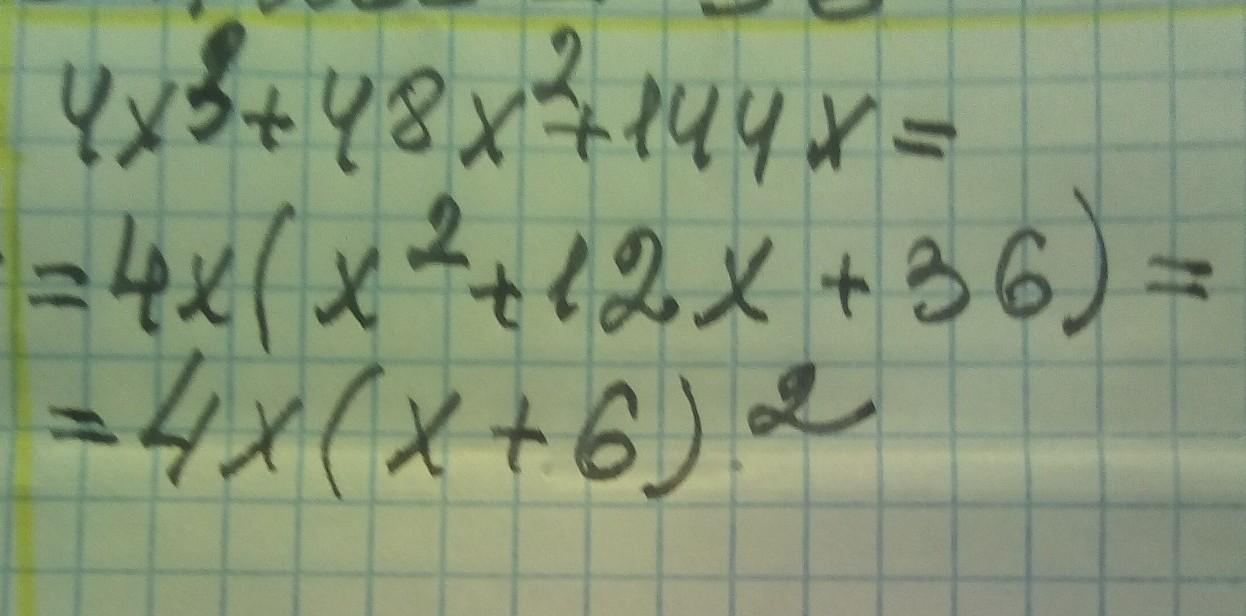 4x³+48x²+144x=
=4x(x²+12x+36)=
=4x(x+6)²